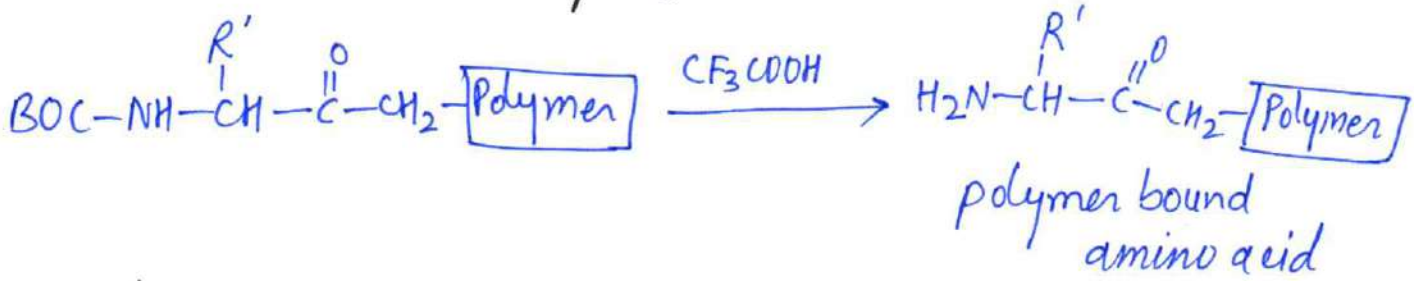 BOC-NH-CH(R')-C(=O)-CH₂-[Polymer] —CF₃COOH→ H₂N-CH(R')-C(=O)-CH₂-[Polymer]
polymer bound
amino acid